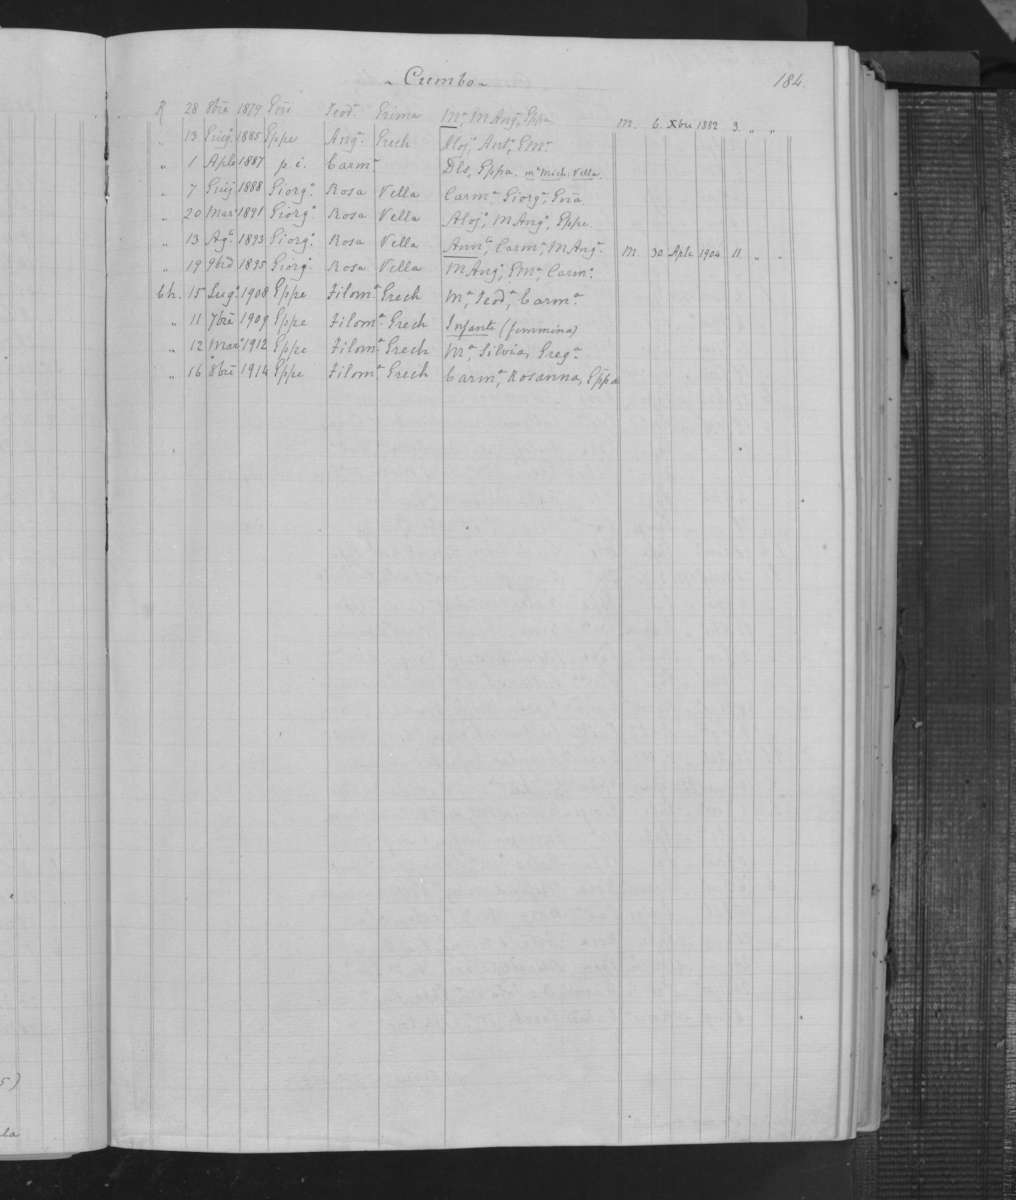 Cumbo 184.
R 28 8bre 1879 Gñi Teod.a Grima M.a M Ang.a Eppa M. 6. Xbre 1882 3. „ „
„ 13 Giug. 1885 Eppe Ang.a Grech Aloj. Ant. Em.
„ 1 Aple 1887 p. i. Carm.a Dls, Eppa. m.e Mich. Vella.
„ 7 Giug. 1888 Giorg.o Rosa Vella Carm.a Giorg.a Gña
„ 20 Mar. 1891 Giorg.o Rosa Vella Aloj.o, M Ang.o, Eppe.
„ 13 Ag.o 1893 Giorg.o Rosa Vella Ann.a Carm.a, M Ang.a M. 30 Aple 1904 11 „ „
„ 19 9bre 1895 Giorg.o Rosa Vella M Ang.o, Em.o, Carm.o
Ch. 15 Lug.o 1908 Eppe Filom.a Grech M.a, Teod.a, Carm.a
„ 11 7bre 1909 Eppe Filom.a Grech Infante (femmina)
„ 12 Mar. 1912 Eppe Filom.a Grech M.a Silvia, Greg.a
„ 16 8bre 1914 Eppe Filom.a Grech Carm.a, Rosanna, Eppa
5)
la